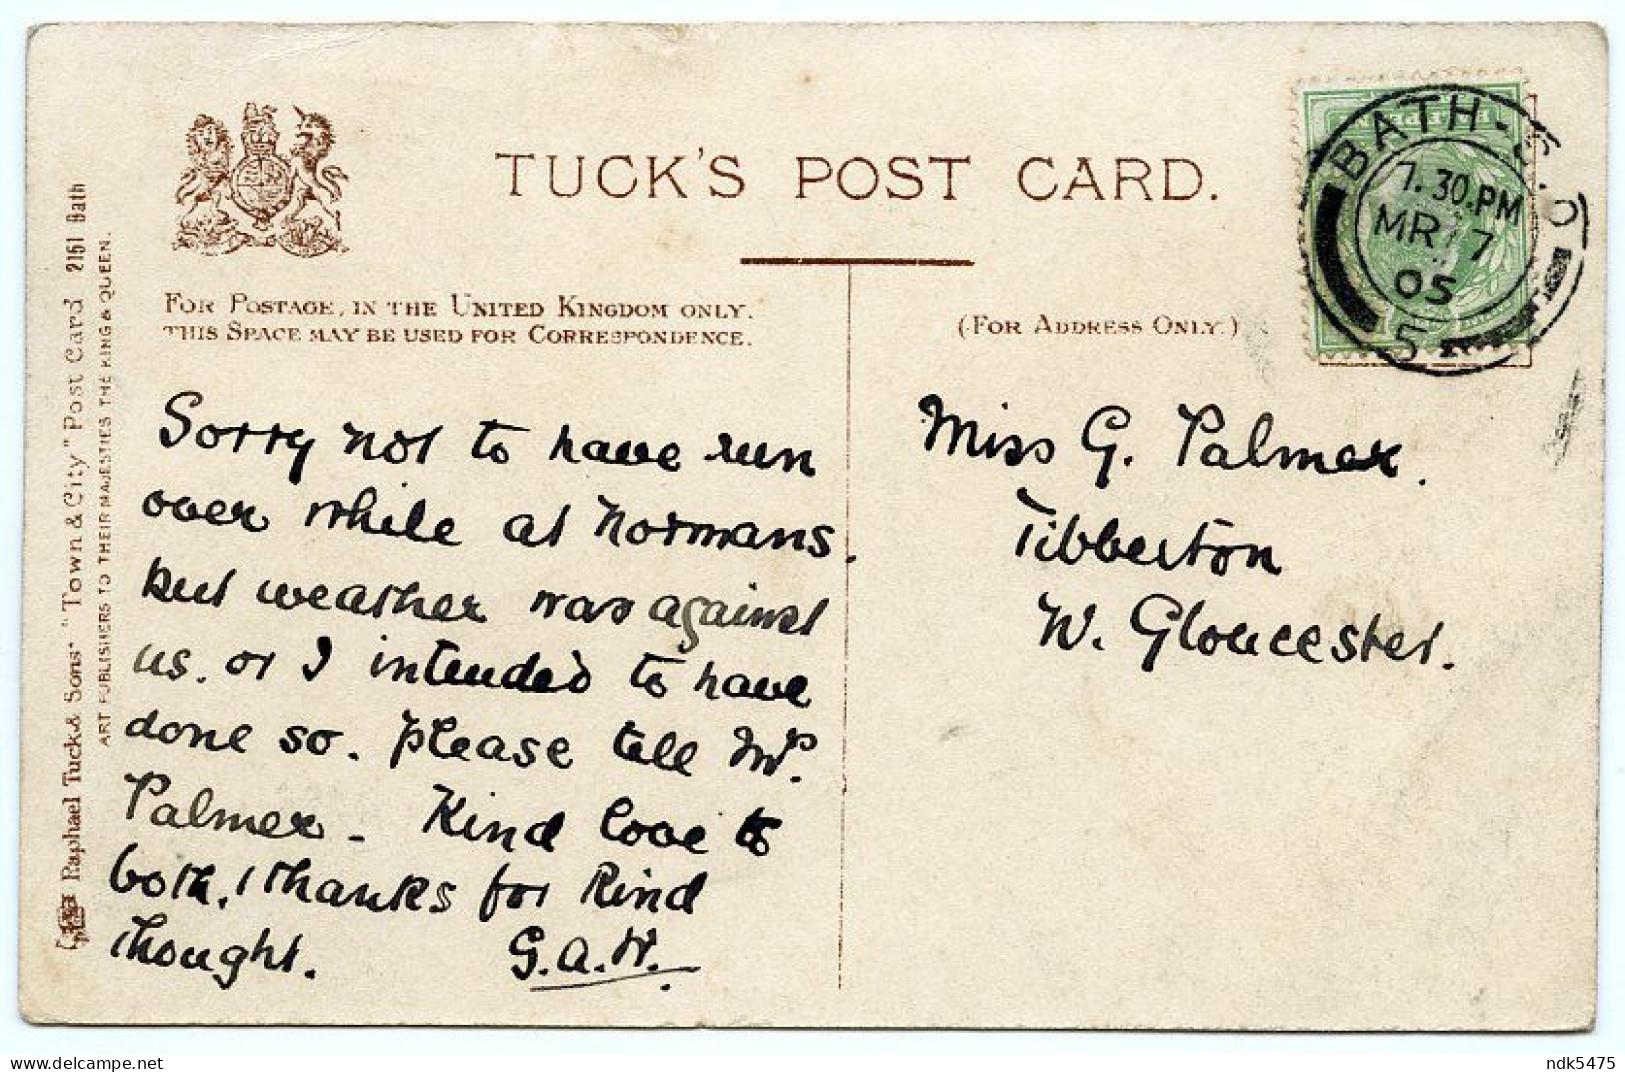 TUCK'S POST CARD.
FOR POSTAGE, IN THE UNITED KINGDOM ONLY.
THIS SPACE MAY BE USED FOR CORRESPONDENCE.
(FOR ADDRESS ONLY.)
BATH-S.O
7.30.PM
MR 17
05
5
HALFPENNY
Sorry not to have run
over while at Normans.
but weather was against
us. or I intended to have
done so. Please tell Mr.
Palmer - Kind love to
both, thanks for kind
thought. G.A.W.
Miss G. Palmer.
Tibberton
W. Gloucester.
Raphael Tuck & Sons' "Town & City" Post Card 2151 Bath
ART PUBLISHERS TO THEIR MAJESTIES THE KING & QUEEN.
delcampe.net
ndk5475